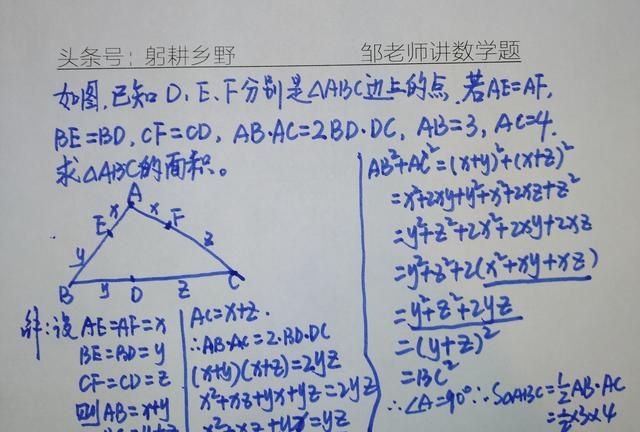 头条号：躬耕乡野
邹老师讲数学题
如图,已知D、E、F分别是△ABC边上的点.若AE=AF,
BE=BD,CF=CD,AB·AC=2BD·DC,AB=3,AC=4.
求△ABC的面积。
A
x
x
E
F
y
z
B
y
D
z
C
解:设AE=AF=x
BE=BD=y
CF=CD=z
则AB=x+y
AC=x+z.
∴AB·AC=2·BD·DC
(x+y)(x+z)=2yz
x²+xz+yx+yz=2yz
x²+xz+yx=yz
AB²+AC²=(x+y)²+(x+z)²
=x²+2xy+y²+x²+2xz+z²
=y²+z²+2x²+2xy+2xz
=y²+z²+2(x²+xy+xz)
=y²+z²+2yz
=(y+z)²
=BC²
∴∠A=90°∴S△ABC=½AB·AC
=½×3×4